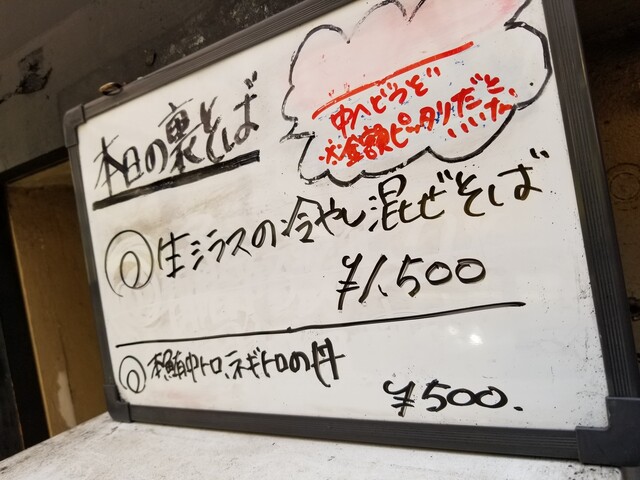 本日の裏そば
中へどうぞ
※金額ピッタリだと
いいな
生シラスの冷やし混ぜそば
¥1,500
本鮪中トロ、ネギトロの丼
¥500.